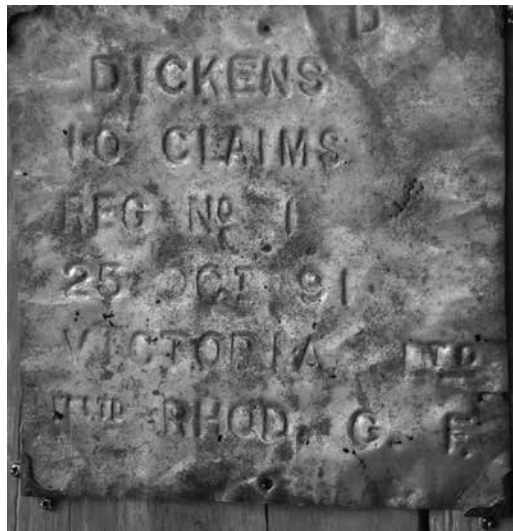 D
DICKENS
10 CLAIMS
REG Nº 1
25 OCT 91
VICTORIA
RHOD. G. F.